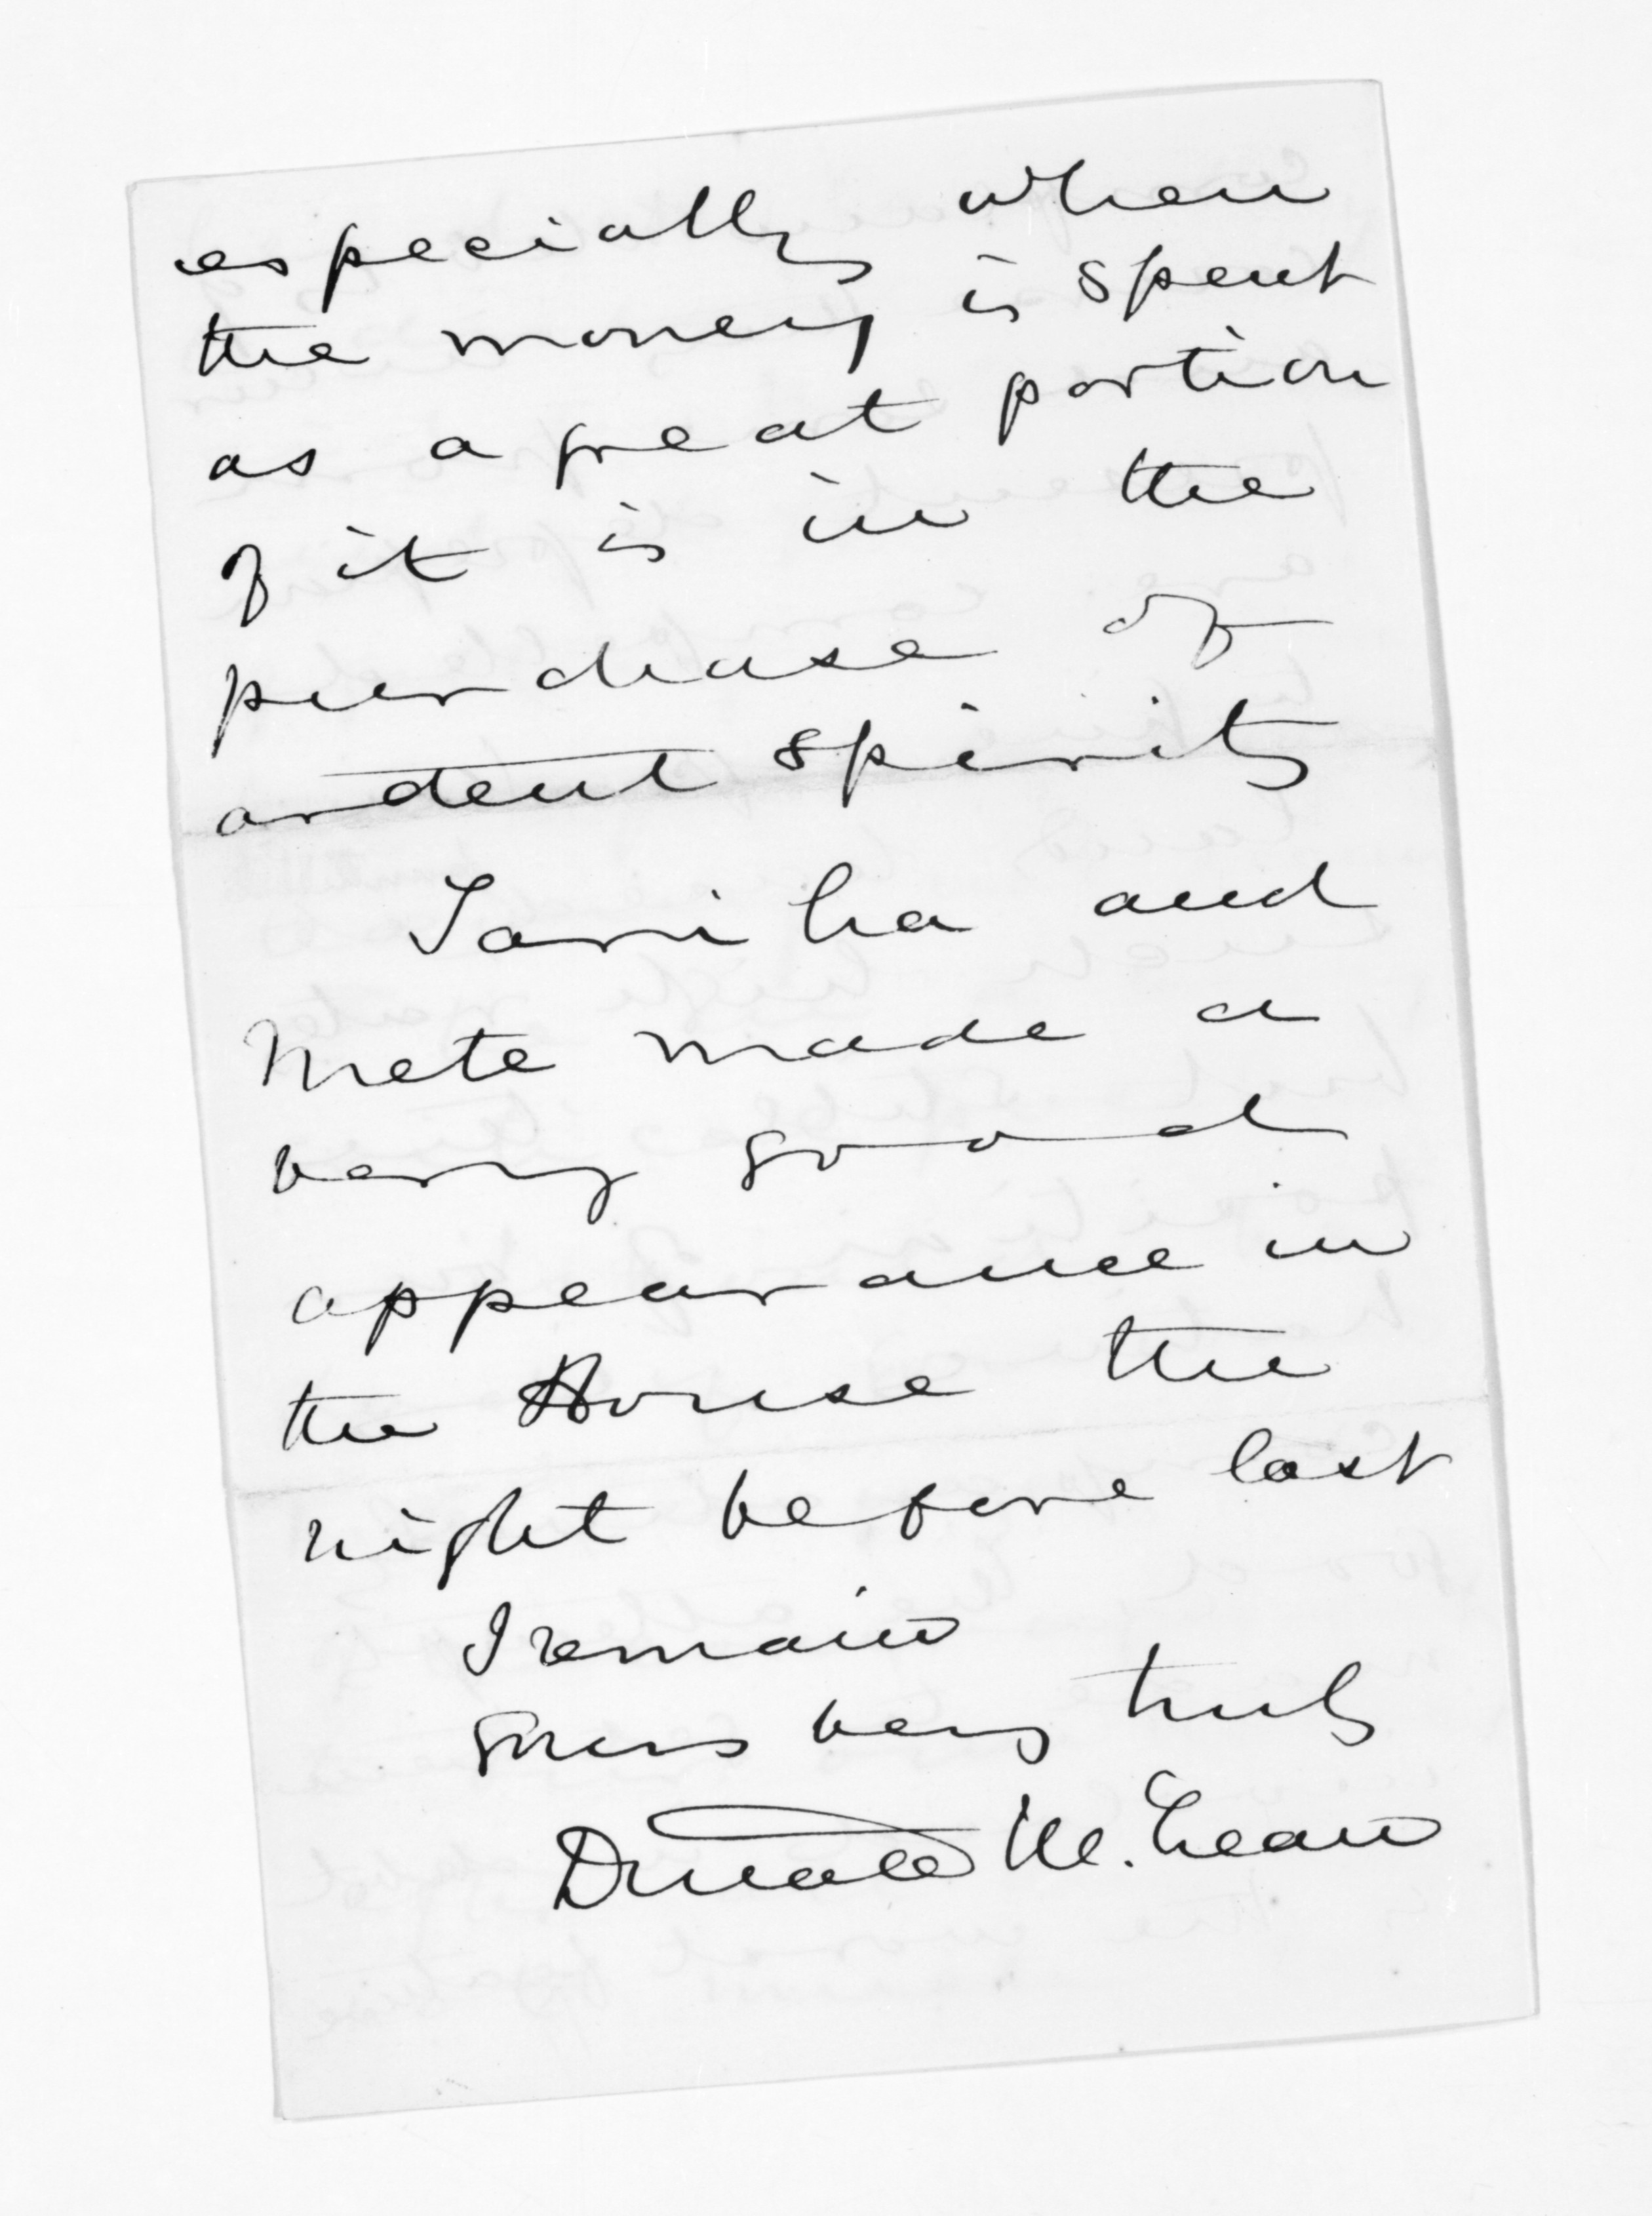 especially when
the money is spent
as a great portion
of it is in the
purchase of
ardent spirits
Tariha and
Mete made a
very good
appearance in
the House the
night before last
I remain
yours very truly
Donald McLean